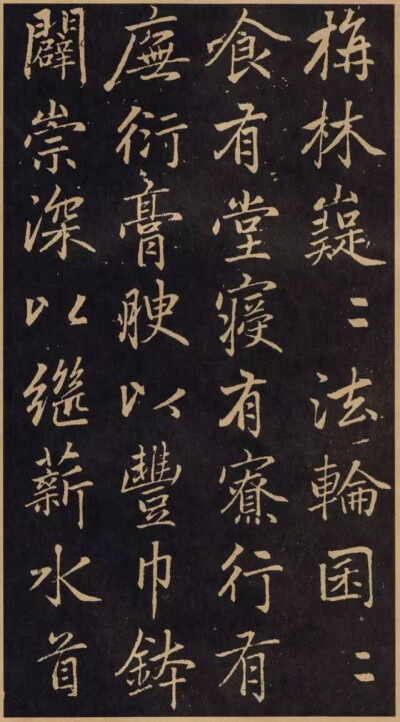 栴林嶷〻法輪囷〻
喰有堂寢有寮行有
廡衍膏腴以豐巾鉢
闢崇深以継薪水首